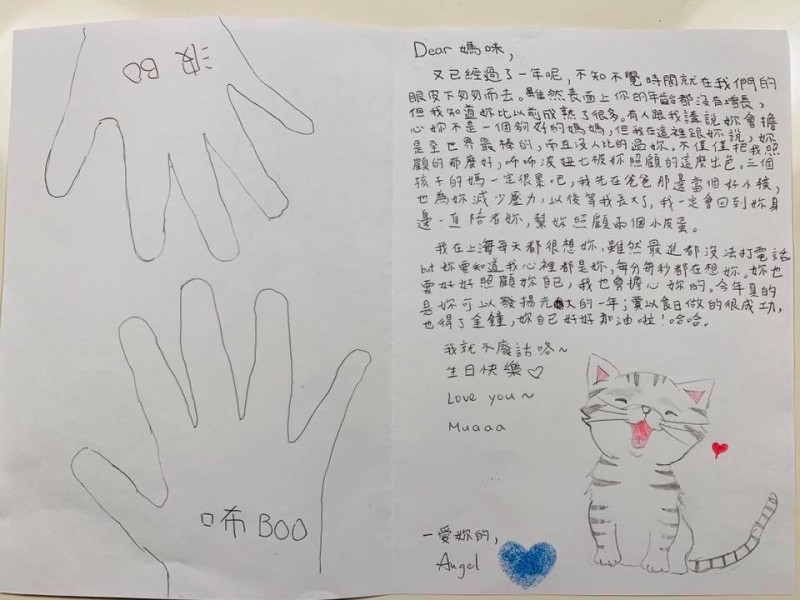 波 BO
咘 BOO
Dear 媽咪,
又已經過了一年呢,不知不覺時間就在我們的
眼皮下匆匆而去。雖然表面上你的年齡都沒有增長,
但我知道妳比以前成熟了很多。有人跟我講說妳會擔
心妳不是一個夠好的媽媽,但我在這裡跟妳說,妳
是全世界最棒的,而且沒人比的過妳。不僅僅把我照
顧的那麼好,咘咘波妞也被妳照顧的這麼出色。三個
孩子的媽一定很累吧,我先在爸爸那邊當個好小孩,
也為妳減少壓力,以後等我長大了,我一定會回到妳身
邊一直陪者妳,幫妳照顧兩個小皮蛋。
我在上海每天都很想妳,雖然最近都沒法打電話
but 妳要知道我心裡都是妳,每分每秒都在想妳。妳也
要好好照顧妳自己,我也會擔心妳的。今年真的
是妳可以發揚光大的一年;賈以食日做的很成功,
也得了金鐘,妳自己好好加油啦!哈哈。
我就不廢話咯~
生日快樂♡
Love you~
Muaaa
一愛妳的,
Angel